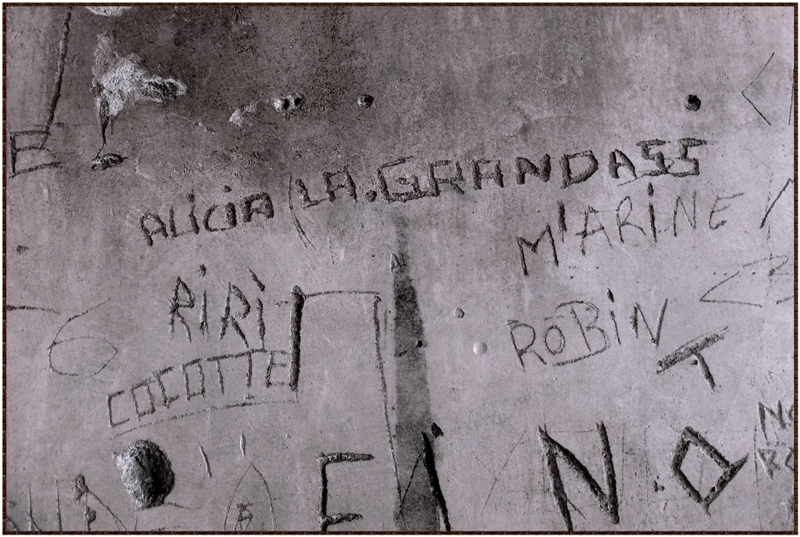 E
ALiCiA LA.GRANDASS
M'ARiNE
RiRi
6
ROBiN
COCOTTE
T
NO